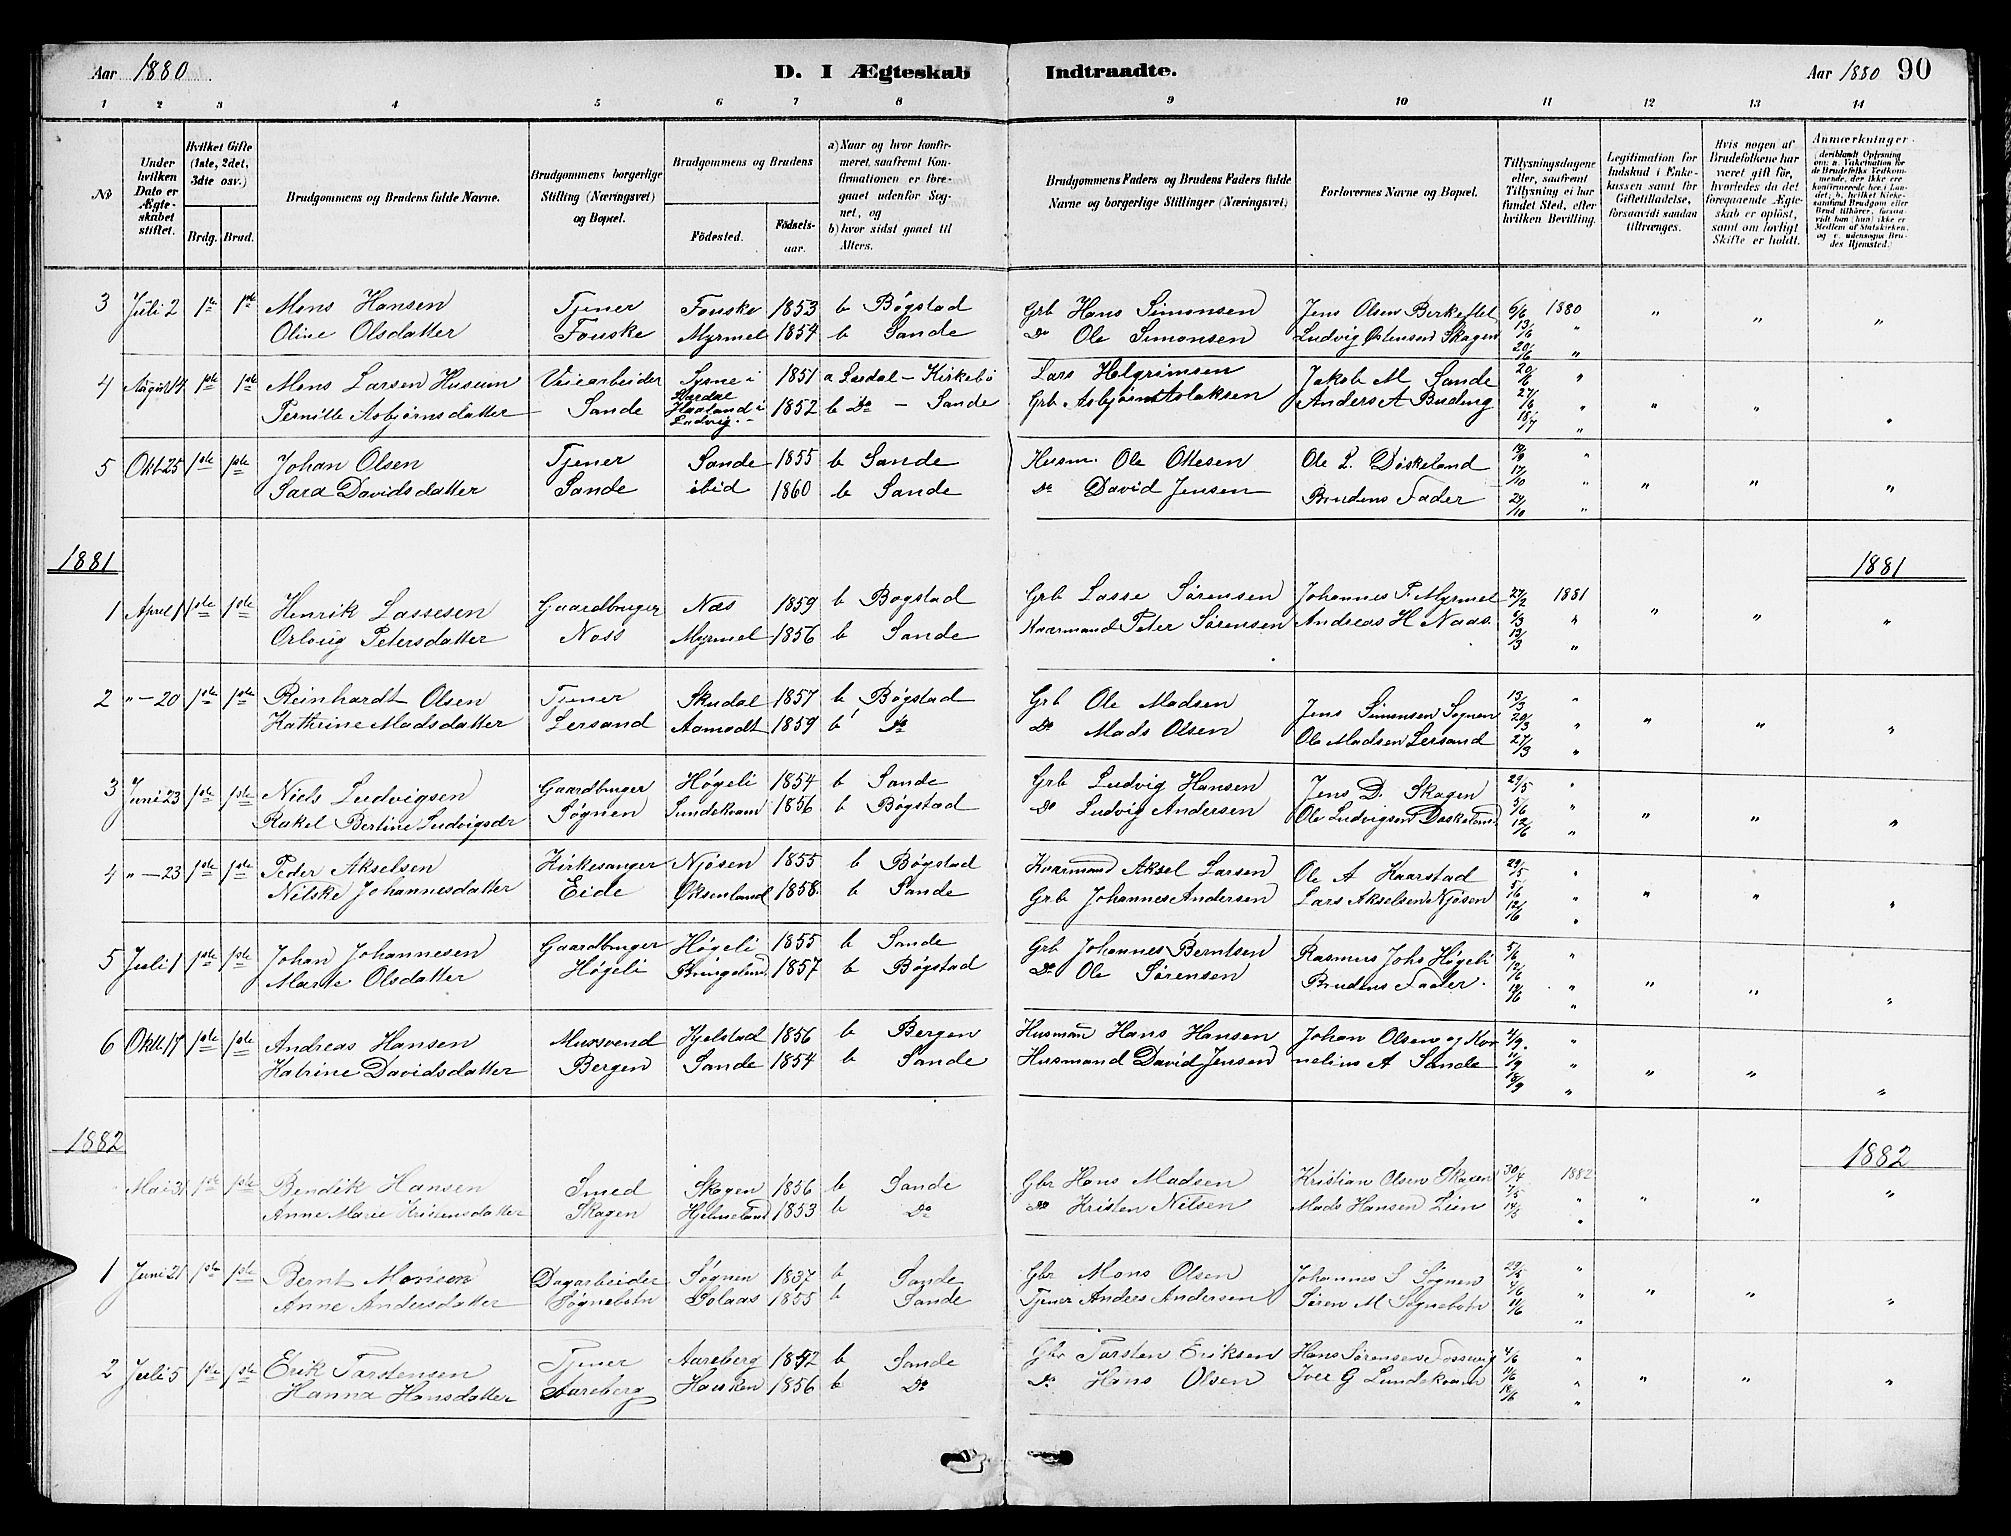 Aar 1880 D. I Ægteskab Indtraadte. Aar 1880 90
1 2 3 4 5 6 7 8 9 10 11 12 13 14
No
Under hvilken Dato er Ægteskabet stiftet.
Hvilket Gifte (1ste, 2det, 3die osv.)
Brdg. Brud.
Brudgommens og Brudens fulde Navne.
Brudgommens borgerlige Stilling (Næringsvei) og Bopæl.
Brudgommens og Brudens
Fødested. Fødselsaar.
a) Naar og hvor konfirmeret, saafremt Konfirmationen er foregaaet udenfor Sognet, og
b) hvor sidst gaaet til Alters.
Brudgommens Faders og Brudens Faders fulde Navne og borgerlige Stillinger (Næringsvei)
Forlovernes Navne og Bopæl.
Tillysningsdagene eller, saafremt Tillysning ei har fundet Sted, efter hvilken Bevilling.
Legitimation for Indskud i Enkekassen samt for Giftetilladelse, forsaavidt saadan tiltrænges.
Hvis nogen af Brudefolkene har været gift før, hvorledes da det foregaaende Ægteskab er opløst, samt om lovligt Skifte er holdt.
Anmærkninger.
3 Juli 2 1ste 1ste Mons Hansen Tjener Fouske 1853 b Bøgstad Grb Hans Simonsen Jens Olsen Birkeflet 6/6 1880 " " "
Oline Olsdatter Fouske Myrmel 1854 b Sande Do Ole Simonsen Ludvig Østensen Skagen 13/6 "
20/6 "
4 August 4 1ste 1ste Mons Larsen Husum Veiearbeider 1851 a Lærdal - Kirkebø Lars Helgrimsen Jakob M Sande 20/6 "
Pernille Asbjørnsdatter Sande Haaland i Ludvig. 1852 b Do - Sande Grb. Asbjørn Aslaksen Anders A Buding 27/6 " " " "
18/7 "
5 Okt 25 1ste 1ste Johan Olsen Tjener Sande 1855 b Sande Husm. Ole Ottesen Ole L. Døskeland "
Sara Davidsdatter Sande ibid 1860 b Sande Do David Jensen Brudens Fader 17/10 " " " "
24/10 "
1881 1881
1 April 1 1ste 1ste Henrik Lassesen Gaardbruger Næs 1859 b Bøgstad Grb Lasse Sørensen Johannes P. Myrmel 27/2 1881 " " "
Orlovig Petersdatter Næss Myrmel 1856 b Sande Kaarmand Peter Sørensen Andreas H Naas 6/3 "
13/3 "
2 " - 20 1ste 1ste Reinhardt Olsen Tjener Skudal 1857 b Bøgstad Grb Ole Madsen Jens Simonsen Sognen 13/3 "
Kathrine Madsdatter Lersand Aamodt 1859 b Do Do Mads Olsen Ole Madsen Lersand 20/3 " " " "
27/3 "
3 Juni 23 1ste 1ste Niels Ludvigsen Gaardbruger Høgeli 1854 b Sande Grb Ludvig Hansen Jens D. Skagen 29/5 "
Rakel Bertine Ludvigsdr Søgnen Lundekvam 1856 b Bøgstad Do Ludvig Andersen Ole Ludvigsen Døskeland 5/6 " " " "
12/6 "
4 " - 23 1ste 1ste Peder Akselsen Kirkesanger Njøsen 1855 b Bøgstad Kaarmand Aksel Larsen Ole A Kaarstad 29/5 "
Nilske Johannesdatter Eide Oksenland 1858 b Sande Grb Johannes Andersen Lars Akselsen Njøsen 5/6 " " " "
12/6 "
5 Juli 1 1ste 1ste Johan Johannesen Gaardbruger Høgeli 1855 b Sande Grb Johannes Berntsen Rasmus Johs Høgeli 5/6 "
Marte Olsdatter Høgeli 1857 b Bøgstad Do Ole Sørensen Brudens Fader. 12/6 " " " "
19/6 "
6 Oktb 17 1ste 1ste Andreas Hansen Mursvend Kjelstad 1856 b Bergen Husman Hans Hansen Johan Olsen og Kor 4/9 "
Katrine Davidsdatter Bergen Sande 1854 b Sande Husmand David Jensen nelius A Sande 11/9 " " " "
18/9 "
1882 1882
Mai 31 1ste 1ste Bendik Hansen Smed Skagen 1856 b Sande Gbr Hans Madsen Kristian Olsen Skagen 30/4 1882
Anne Marie Kristensdatter Skagen Hjelmeland 1853 b Do Do Kristen Nilsen Mads Hansen Lien 7/5 " " " "
14/5 "
1 Juni 21 1ste 1ste Bernt Monsen Dagarbeider Søgnen 1837 b Sande Gbr Mons Olsen Johannes S Søgnen 29/5 "
Anne Andersdatter Søgnebotn Solaas 1855 b Sande Tjener Anders Andersen Søren M Søgnebotn 4/6 " " " "
11/6 "
2 Juli 5 1ste 1ste Erik Tarstensen Tjener Aareberg 1852 b Sande Gbr Tarsten Eriksen Hans Sørensen Fossevig 4/6 "
Hanna Hansdatter Aareberg 1856 b Do Do Hans Olsen Iver G Lundekvam 11/6 " " " "
18/6 "